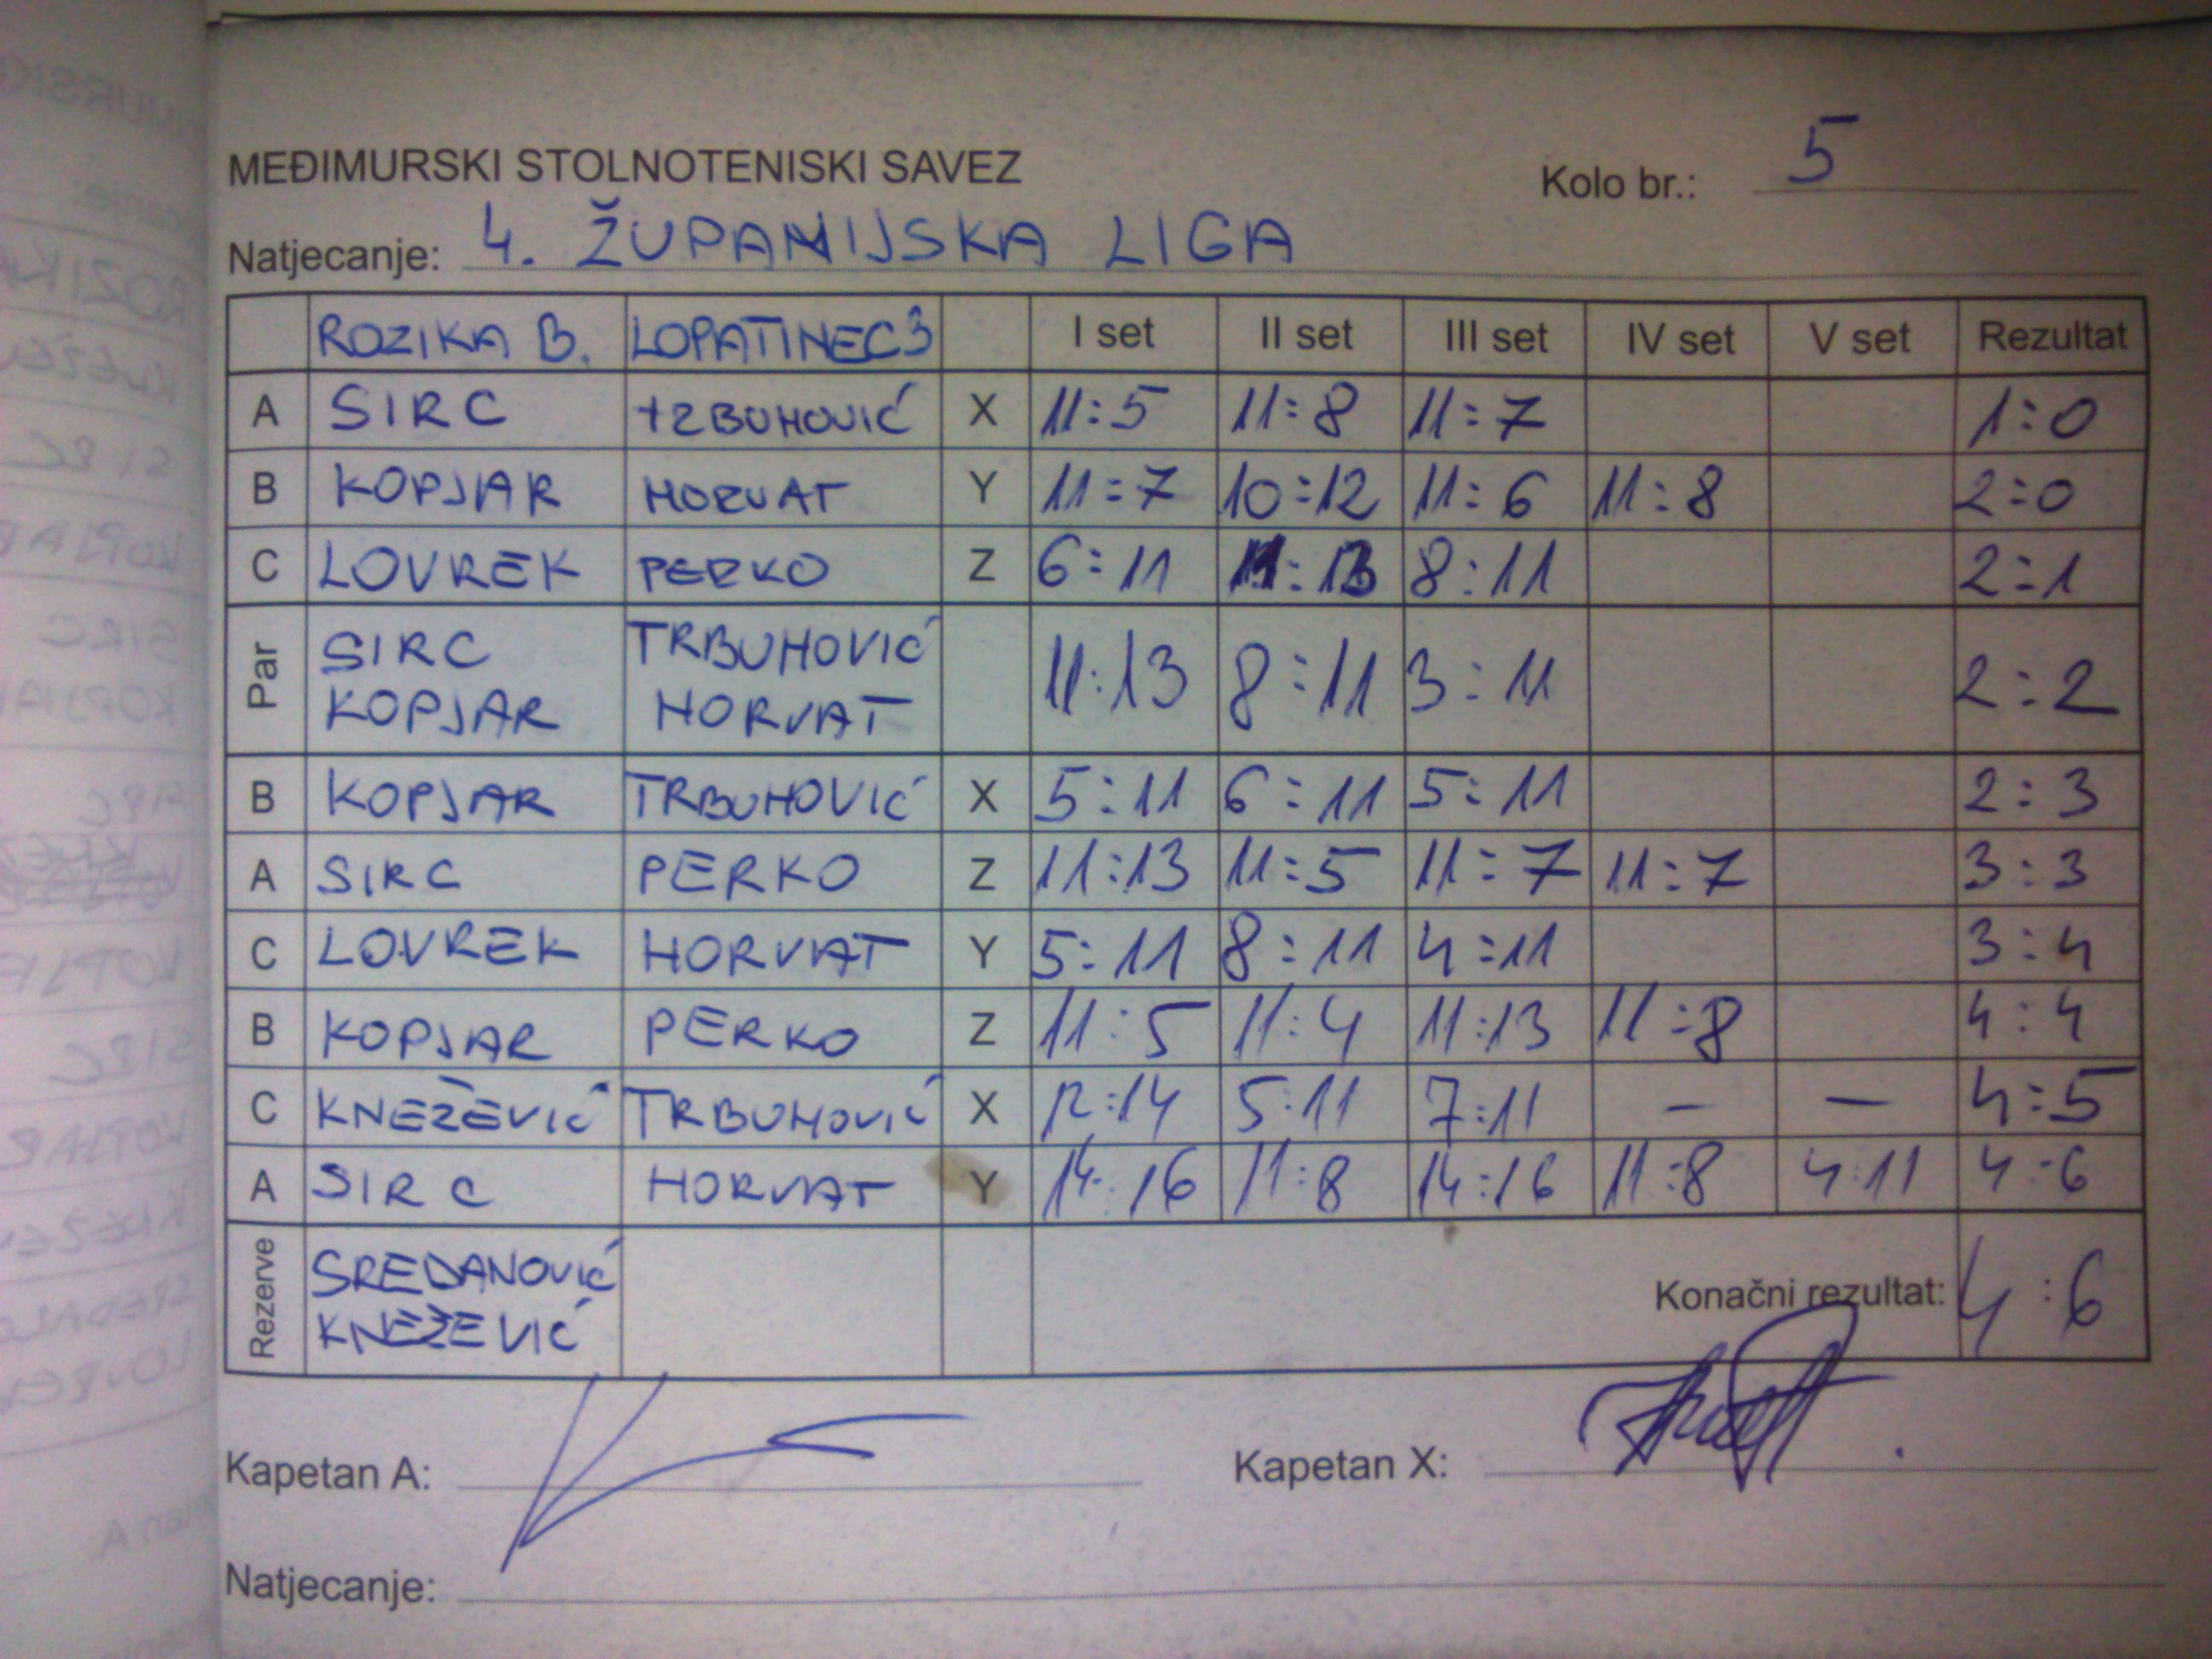 MEĐIMURSKI STOLNOTENISKI SAVEZ
Kolo br.: 5
Natjecanje: 4. ŽUPANIJSKA LIGA
ROZIKA B. LOPATINEC3 I set II set III set IV set V set Rezultat
A SIRC TRBUHOVIĆ X 11:5 11:8 11:7 1:0
B KOPJAR HORVAT Y 11:7 10:12 11:6 11:8 2:0
C LOVREK PERKO Z 6:11 11:13 8:11 2:1
Par SIRC TRBUHOVIĆ 11:13 8:11 3:11 2:2
KOPJAR HORVAT
B KOPJAR TRBUHOVIĆ X 5:11 6:11 5:11 2:3
A SIRC PERKO Z 11:13 11:5 11:7 11:7 3:3
C LOVREK HORVAT Y 5:11 8:11 4:11 3:4
B KOPJAR PERKO Z 11:5 11:4 11:13 11:8 4:4
C KNEŽEVIĆ TRBUHOVIĆ X 12:14 5:11 7:11 — — 4:5
A SIRC HORVAT Y 14:16 11:8 14:16 11:8 4:11 4:6
Rezerve SREDANOVIĆ Konačni rezultat: 4:6
KNEŽEVIĆ
Kapetan A: Kapetan X:
Natjecanje: